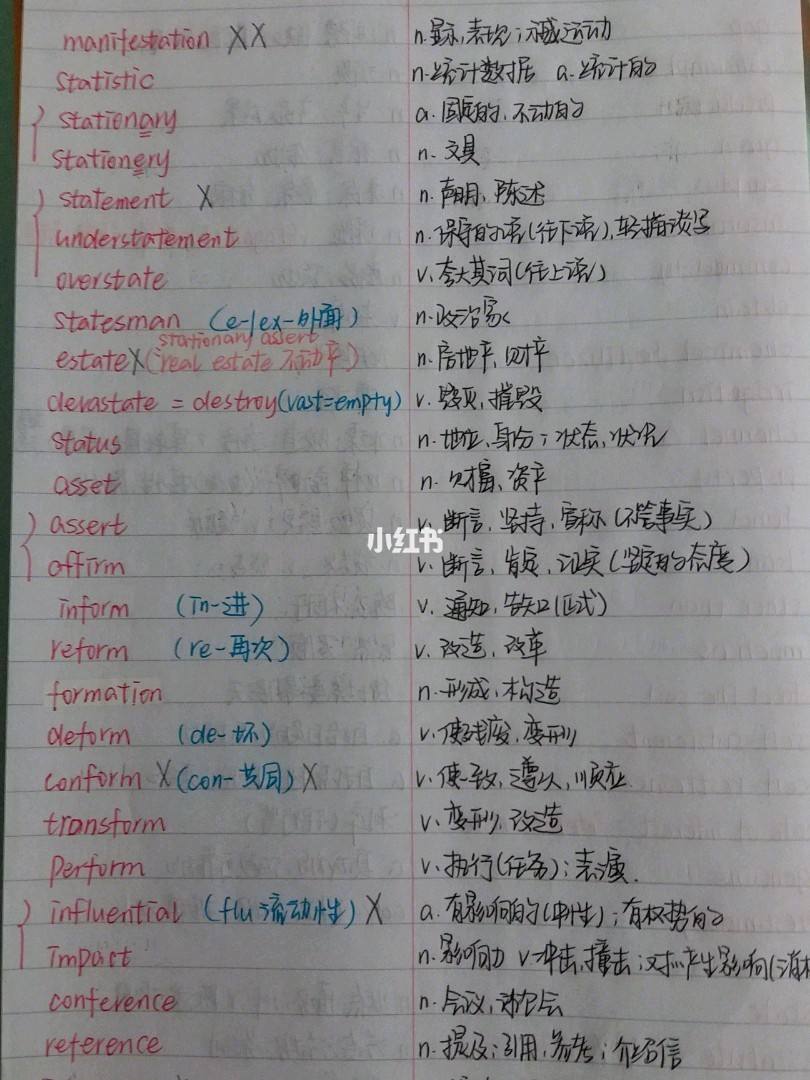 manifestation XX n.显示,表现;示威运动
statistic n.统计数据 a.统计的
stationary a.固定的,不动的
stationery n.文具
statement X n.声明,陈述
understatement n.保守的话(往下话),轻描淡写
overstate v.夸大其词(往上话)
statesman (e-/ex-外面) n.政治家
stationary assert
estate X (real estate 不动产) n.房地产,财产
devastate = destroy(vast=empty) v.毁灭,摧毁
status n.地位,身份;状态,状况
asset n.财富,资产
assert v.断言,坚持,宣称(不管事实)
小红书
affirm v.断言,肯定,证实(坚定的态度)
inform (in-进) v.通知,告知(正式)
reform (re-再次) v.改造,改革
formation n.形成,构造
deform (de-坏) v.使残废,变形
conform X (con-共同) X v.使一致,遵从,顺应
transform v.变形,改造
perform v.执行(任务);表演.
influential (flu流动性) X a.有影响的(中性);有权势的
impact n.影响力 v.冲击,撞击;对…产生影响(消极
conference n.会议,讨论会
reference n.提及;引用,参考;介绍信